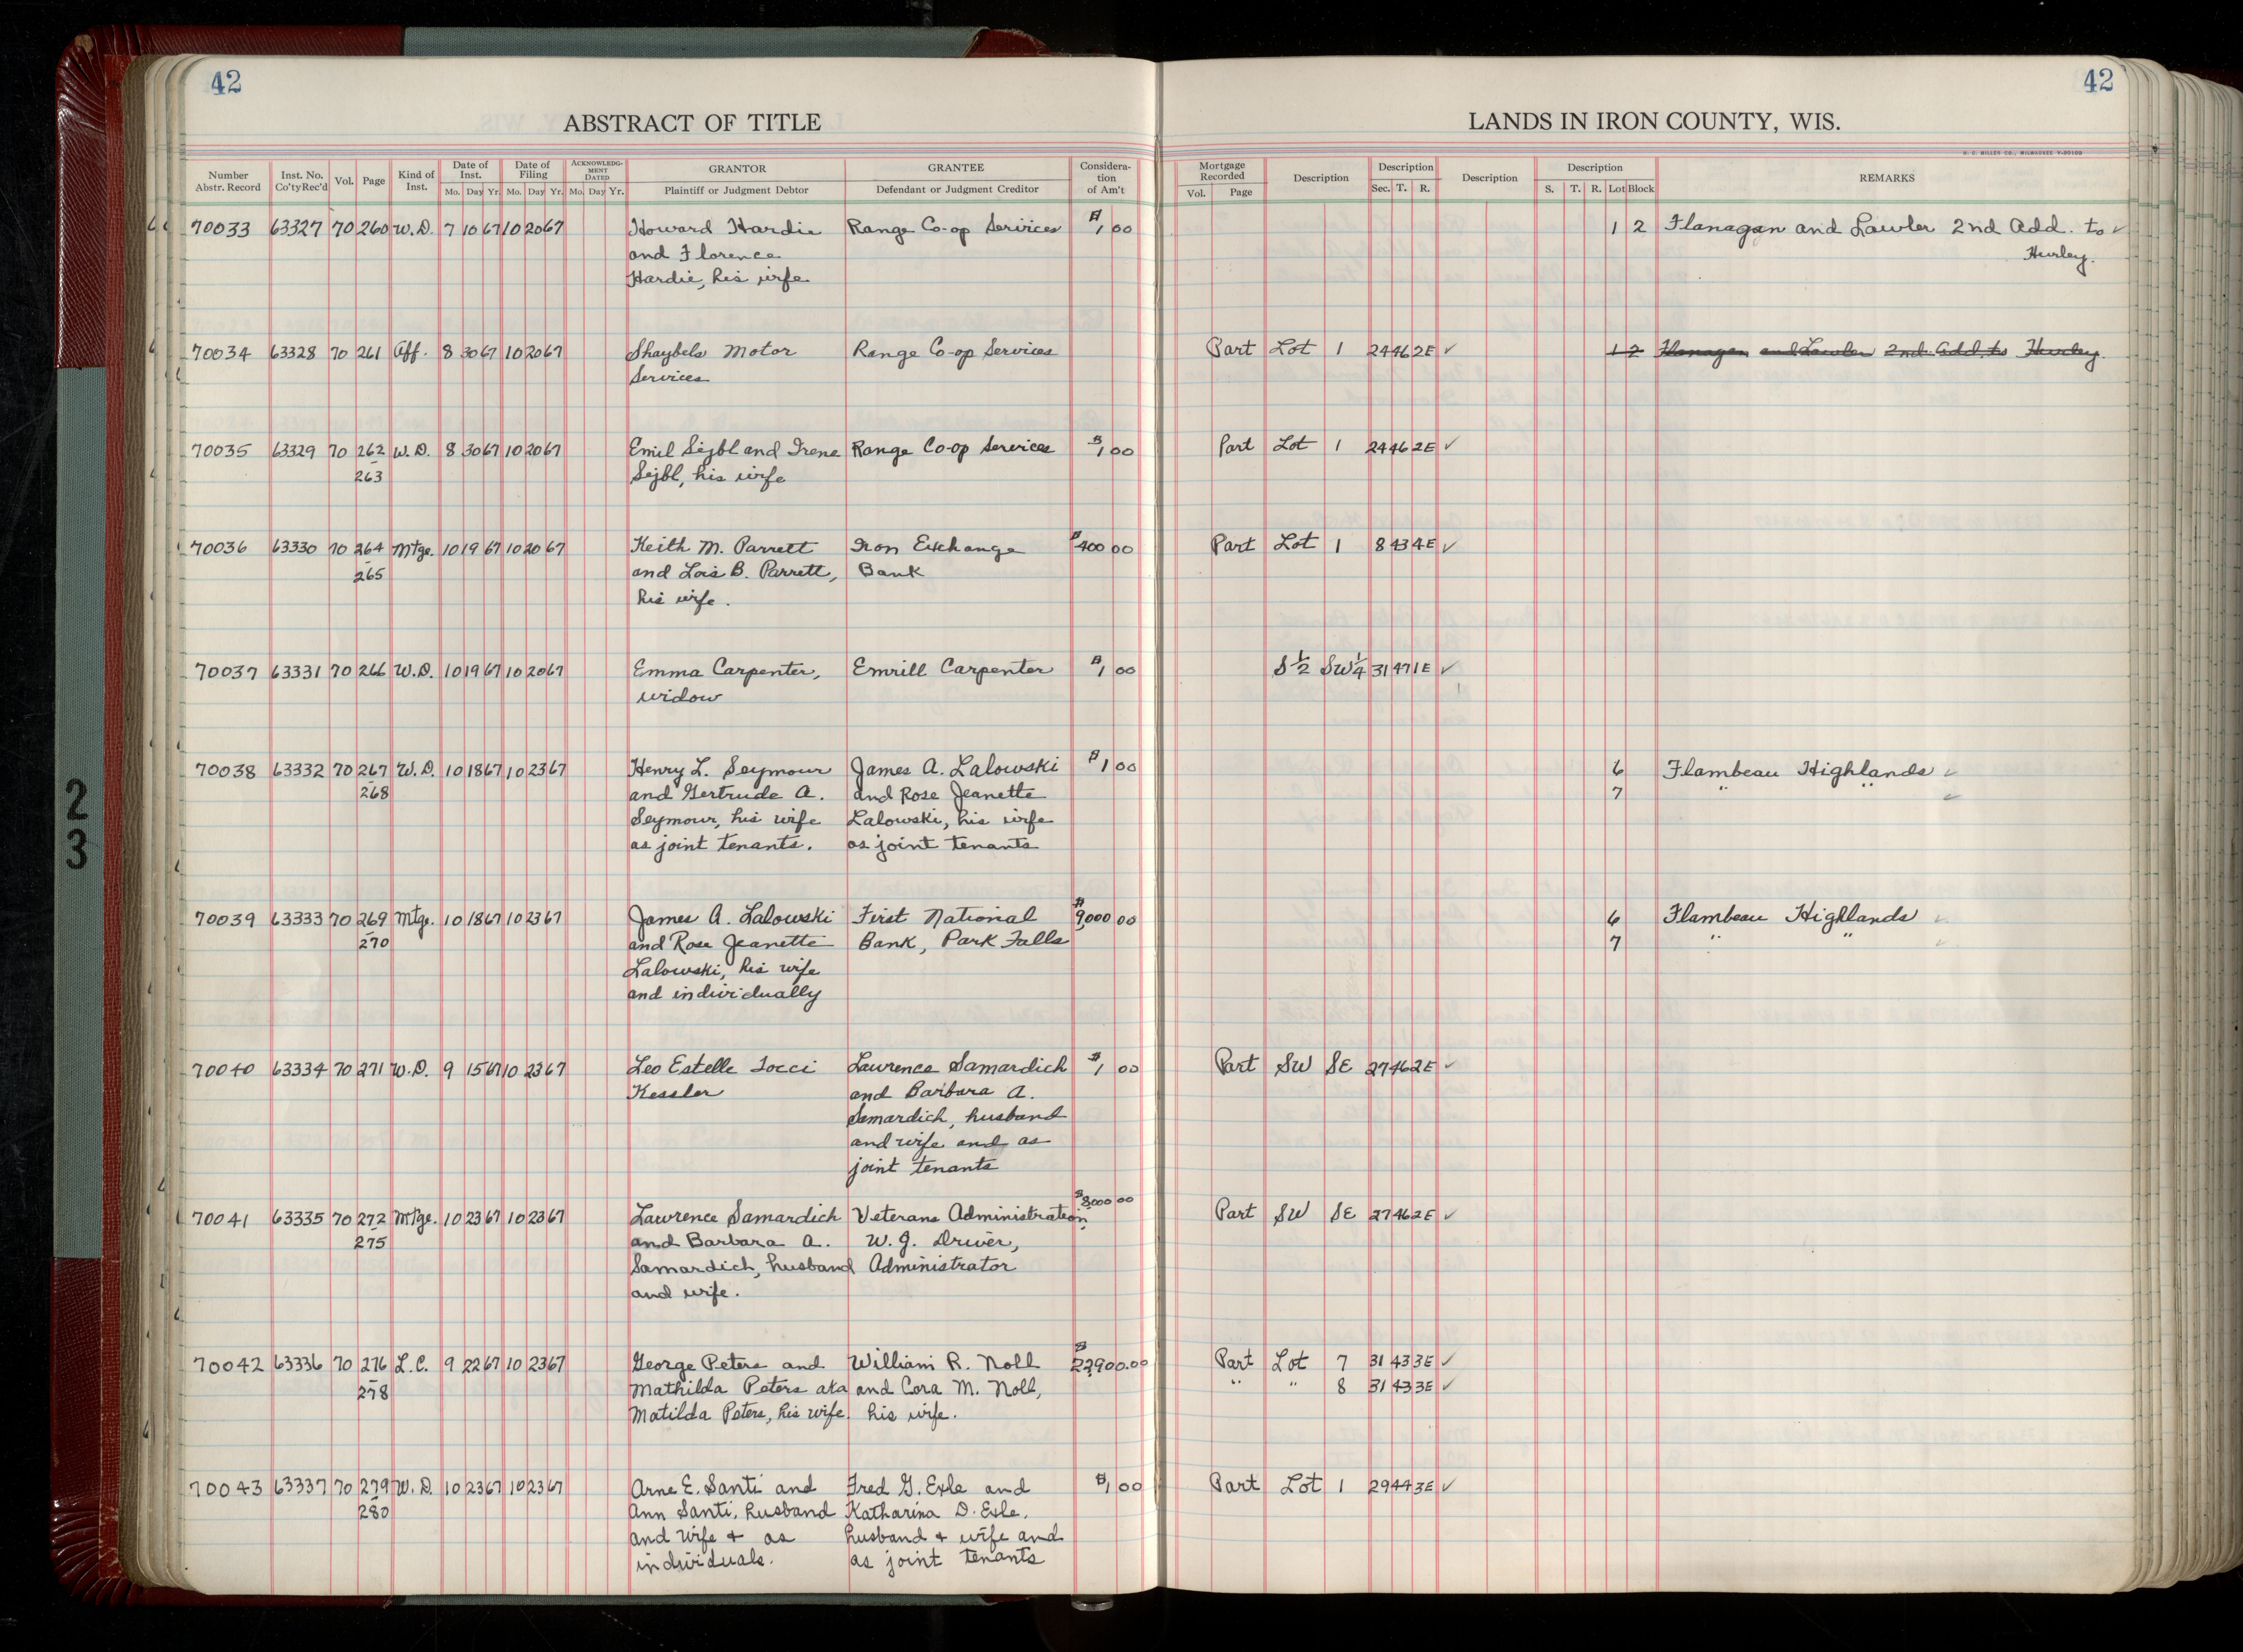 42
ABSTRACT OF TITLE
Number Abstr. Record | Inst. No. Co'ty Rec'd | Vol. | Page | Kind of Inst. | Date of Inst. Mo. Day Yr. | Date of Filing Mo. Day Yr. | ACKNOWLEDGMENT DATED Mo. Day Yr. | GRANTOR Plaintiff or Judgment Debtor | GRANTEE Defendant or Judgment Creditor | Consideration of Am't
42
LANDS IN IRON COUNTY, WIS.
H. C. MILLER CO., MILWAUKEE
Mortgage Recorded Vol. Page | Description | Description Sec. T. R. | Description | Description S. T. R. Lot Block | REMARKS
70033 63327 70 260 W.D. 7 10 67 10 20 67 Howard Hardie Range Co-op Serivices $1 00 1 2 Flanagan and Lawler 2nd Add. to
and Florence Hurley.
Hardie, his wife
70034 63328 70 261 Aff. 8 30 67 10 20 67 Shaybels Motor Range Co-op Services Part Lot 1 24 46 2E ✓ 1 2 Flanagan and Lawler 2nd Add. to Hurley.
Services
70035 63329 70 262 W.D. 8 30 67 10 20 67 Emil Sejbl and Irene Range Co-op Services $1 00 Part Lot 1 24 46 2E ✓
263 Sejbl, his wife
70036 63330 70 264 Mtge. 10 19 67 10 20 67 Keith M. Parrett Iron Exchange $400 00 Part Lot 1 8 43 4E ✓
265 and Lois B. Parrett, Bank
his wife.
70037 63331 70 266 W.D. 10 19 67 10 20 67 Emma Carpenter, Emrill Carpenter $1 00 S 1/2 SW 1/4 31 47 1E ✓
widow
70038 63332 70 267 W.D. 10 18 67 10 23 67 Henry L. Seymour James A. Lalowski $1 00 6 Flambeau Highlands ✓
268 and Gertrude A. and Rose Jeanette 7 " " ✓
Seymour, his wife Lalowski, his wife
as joint tenants. as joint tenants
70039 63333 70 269 Mtge. 10 18 67 10 23 67 James A. Lalowski First National $9,000 00 6 Flambeau Highlands ✓
270 and Rose Jeanette Bank, Park Falls 7 " " ✓
Lalowski, his wife
and individually
70040 63334 70 271 W.D. 9 15 67 10 23 67 Leo Estelle Tocci Lawrence Samardich $1 00 Part SW SE 27 46 2E ✓
Kessler and Barbara A.
Samardich, husband
and wife and as
joint tenants
70041 63335 70 272 Mtge. 10 23 67 10 23 67 Lawrence Samardich Veterans Administration, $8,000 00 Part SW SE 27 46 2E ✓
275 and Barbara A. W. J. Driver,
Samardich, husband Administrator
and wife.
70042 63336 70 276 L.C. 9 22 67 10 23 67 George Peters and William R. Noll $22,900.00 Part Lot 7 31 43 3E ✓
278 Mathilda Peters aka and Cora M. Noll, " " 8 31 43 3E ✓
Matilda Peters, his wife. his wife.
70043 63337 70 279 W.D. 10 23 67 10 23 67 Arne E. Santi and Fred G. Exle and $1 00 Part Lot 1 29 44 3E ✓
280 Ann Santi, husband Katharina D. Exle,
and wife + as husband + wife and
individuals. as joint tenants
23